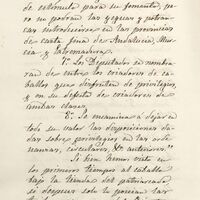 de estímulo para su fomento, pe-
ro no podrán las yeguas y potran-
cas introducirse en las provincias
de casta fina de Andalucía, Mur-
cia y Extremadura.
7. Los Diputados se nombra-
rán de entre los criadores de caba-
llos que disfruten de privilegios,
y en su defecto de criadores de
ambas clases.
8. Se encaminará a dejar en
todo su valor las disposiciones da-
das sobre privilegios en las orde-
nanzas, circulares, &c. anteriores."
Si bien hemos visto en
los primeros tiempos al caballo
bajo la tienda del patriarcado
si después solo le poseían los